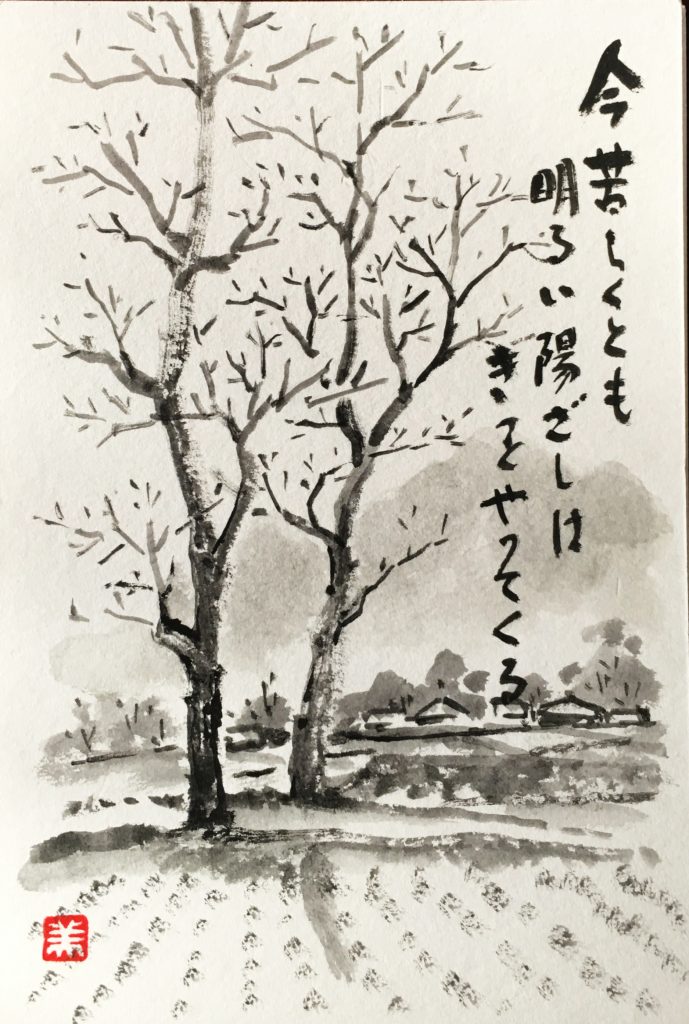 今苦しくとも
明るい陽ざしは
きっとやってくる
美